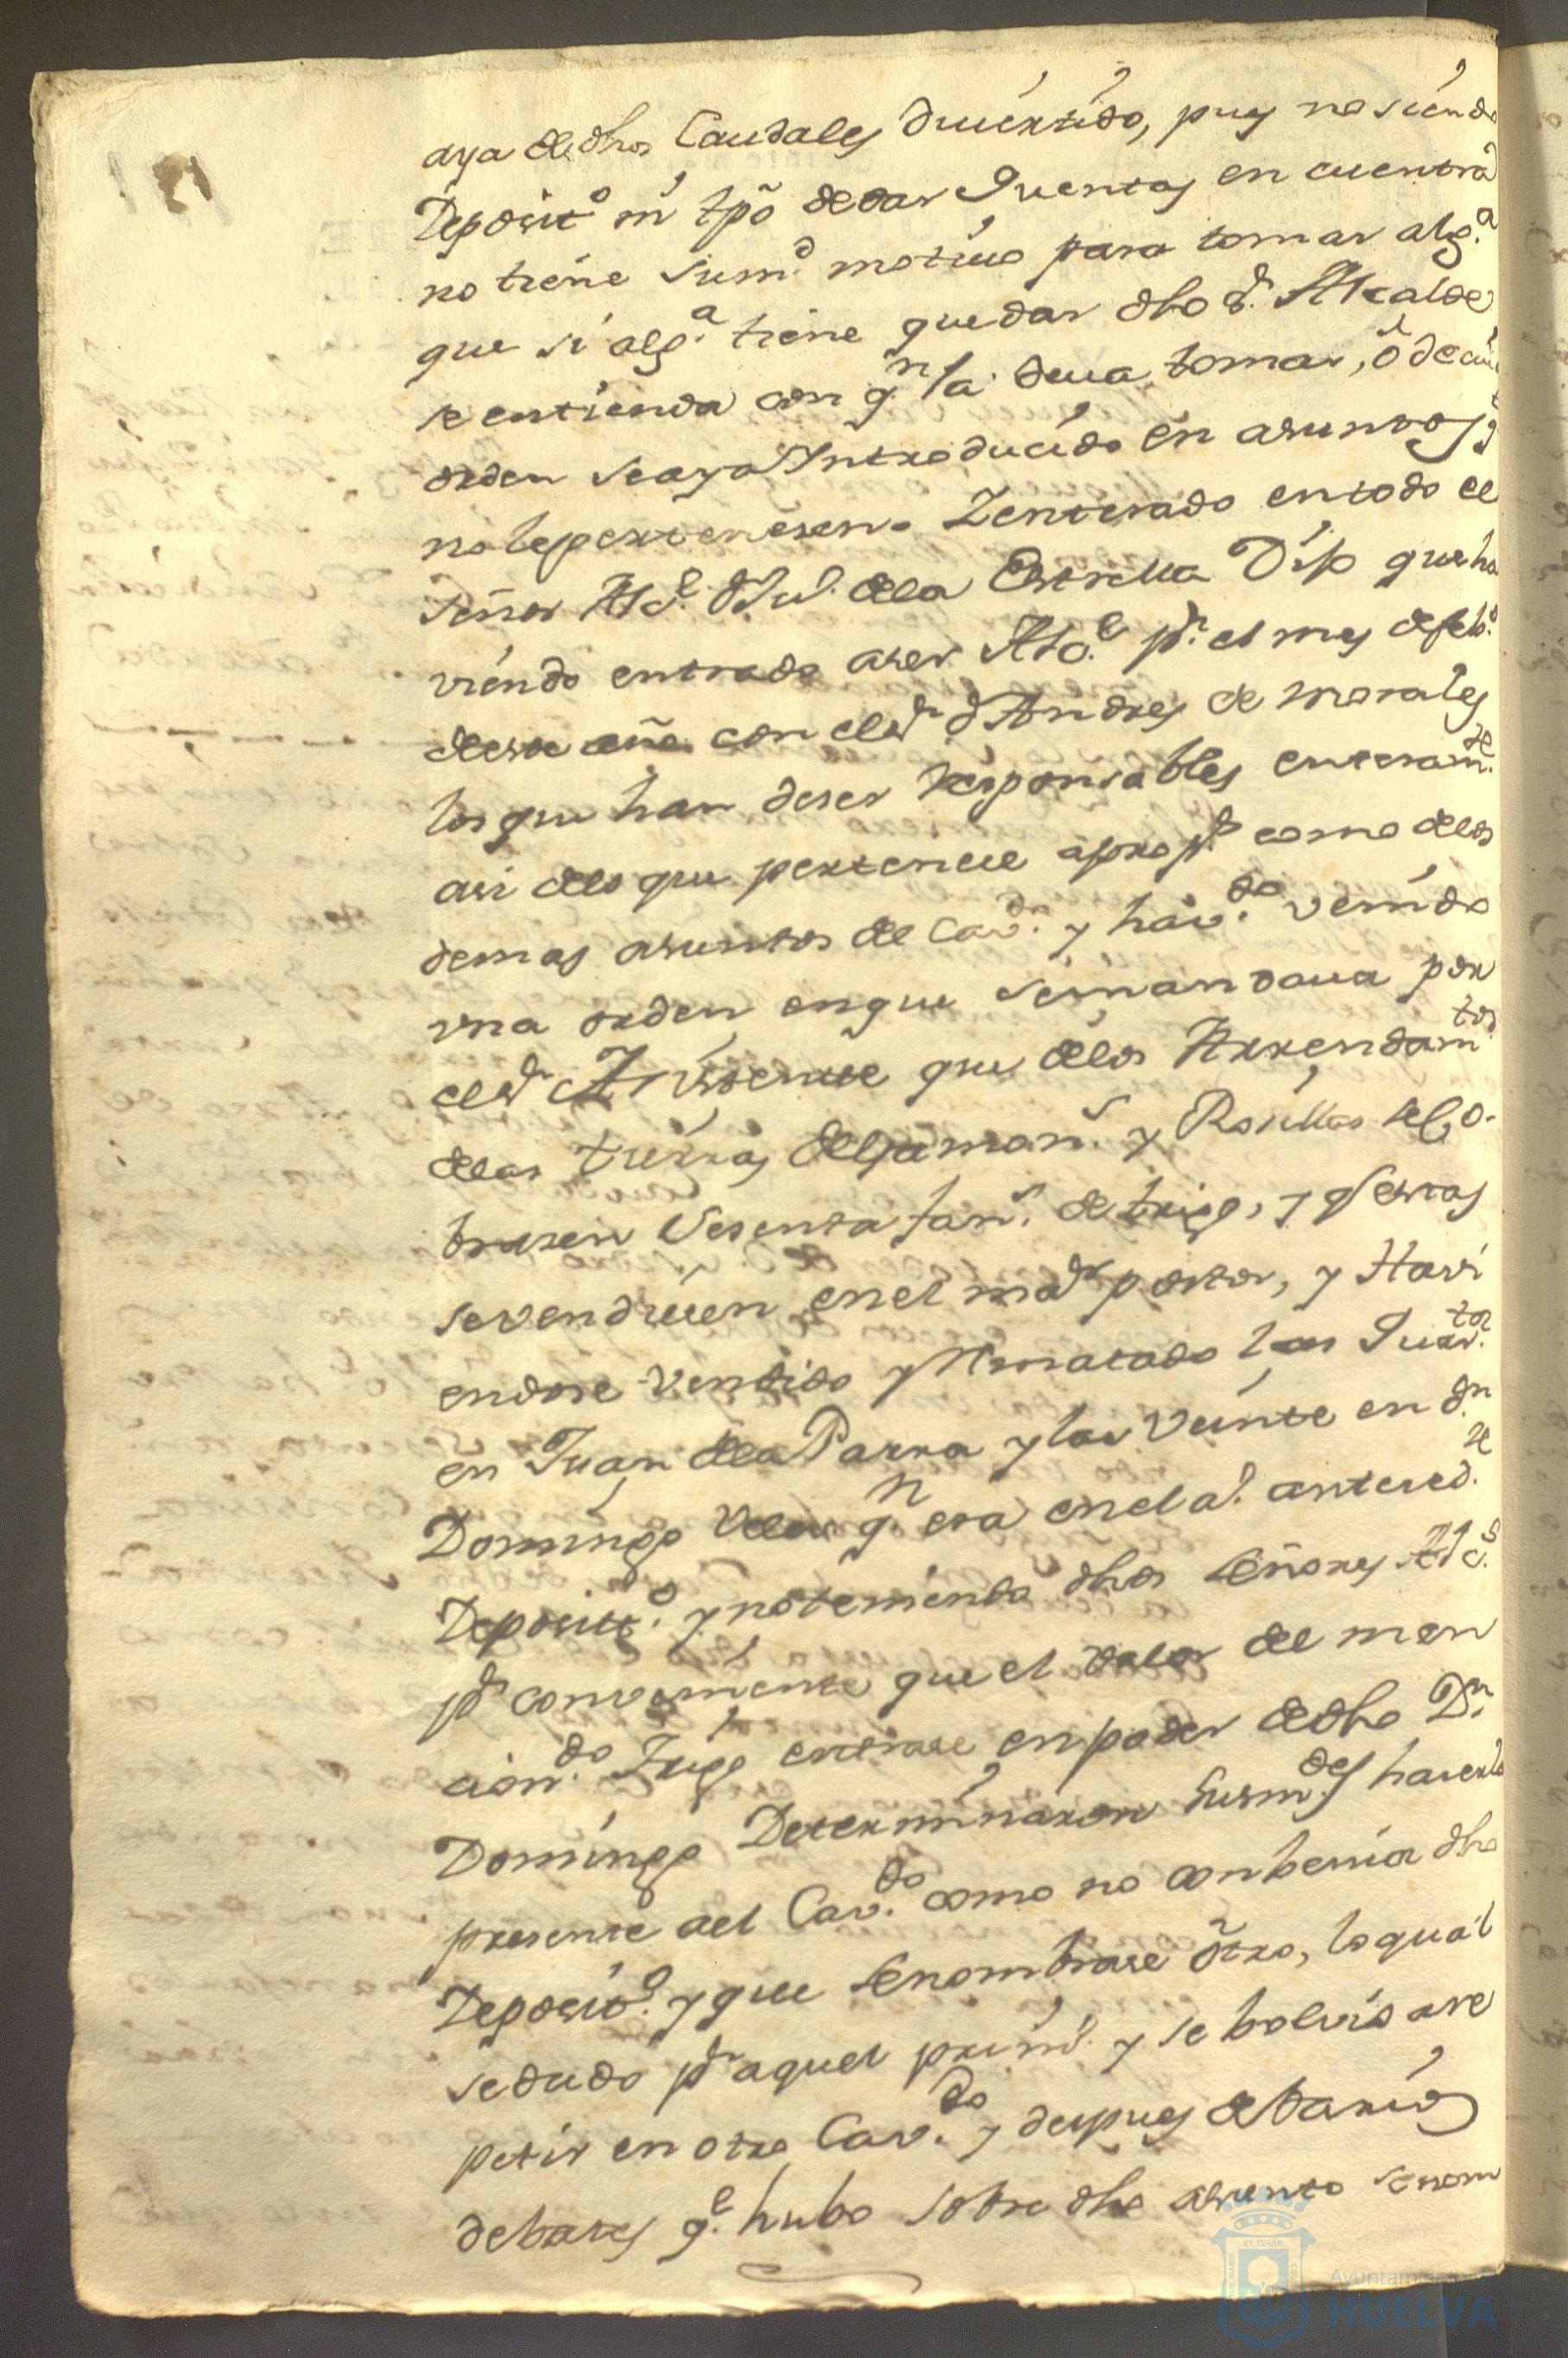 aya de dhos Caudales diuertido, pues no siendo
Deposit.º ni tpõ de dar Quentas en cuentra
no tiene su m.d motiuo para tomar alg.a
que si alg.a tiene que dar dho S.r Alcalde
se entienda con q.n la deua tomar, ó de cuia
orden se aya Introducido en asuntos q.e
no le pertenesen. Y enterado en todo el
señor Alc.e D. Ju.º de la Estrella Dijo que ha
viendo entrado a ser Alc.e p.r el mes de feb.º
de este año con el S.r d. Andres de Morales
los que han de ser Responsables enteram.te
asi de lo que pertenece a propº como de los
demas asuntos de Cav.dº y hav.do venido
vna orden en que se mandaua por
el S.r Asistente que de los Arrendam.tos
de las tierras de Gamon.s y Rosillas se Co-
brasen Sesenta fan.s de trigo, y q.e estas
se vendiesen en el ma.r postor, y Havi
endose vendido y Rematado las Quar.ta
en Juan de la Parra y las Veinte en d.n
Domingo Velas q.n era en el a.º antesed.te
Deposit.º y no teniendo dhos señores Alc.s
p.r conveniente que el valor de el men
cion.do Trigo entrase en poder de dho D.n
Domingo Determinaron sus m.des haserlo
presente a el Cav.do como no conbenia dho
Deposit.º y que se nombrase ótro, lo qual
se dudo p.r aquel prim.º y se bolvió a re
petir en otro Cav.do y despues de barios
debates q.e hubo sobre dho asunto se nom
Ayuntamiento
HUELVA